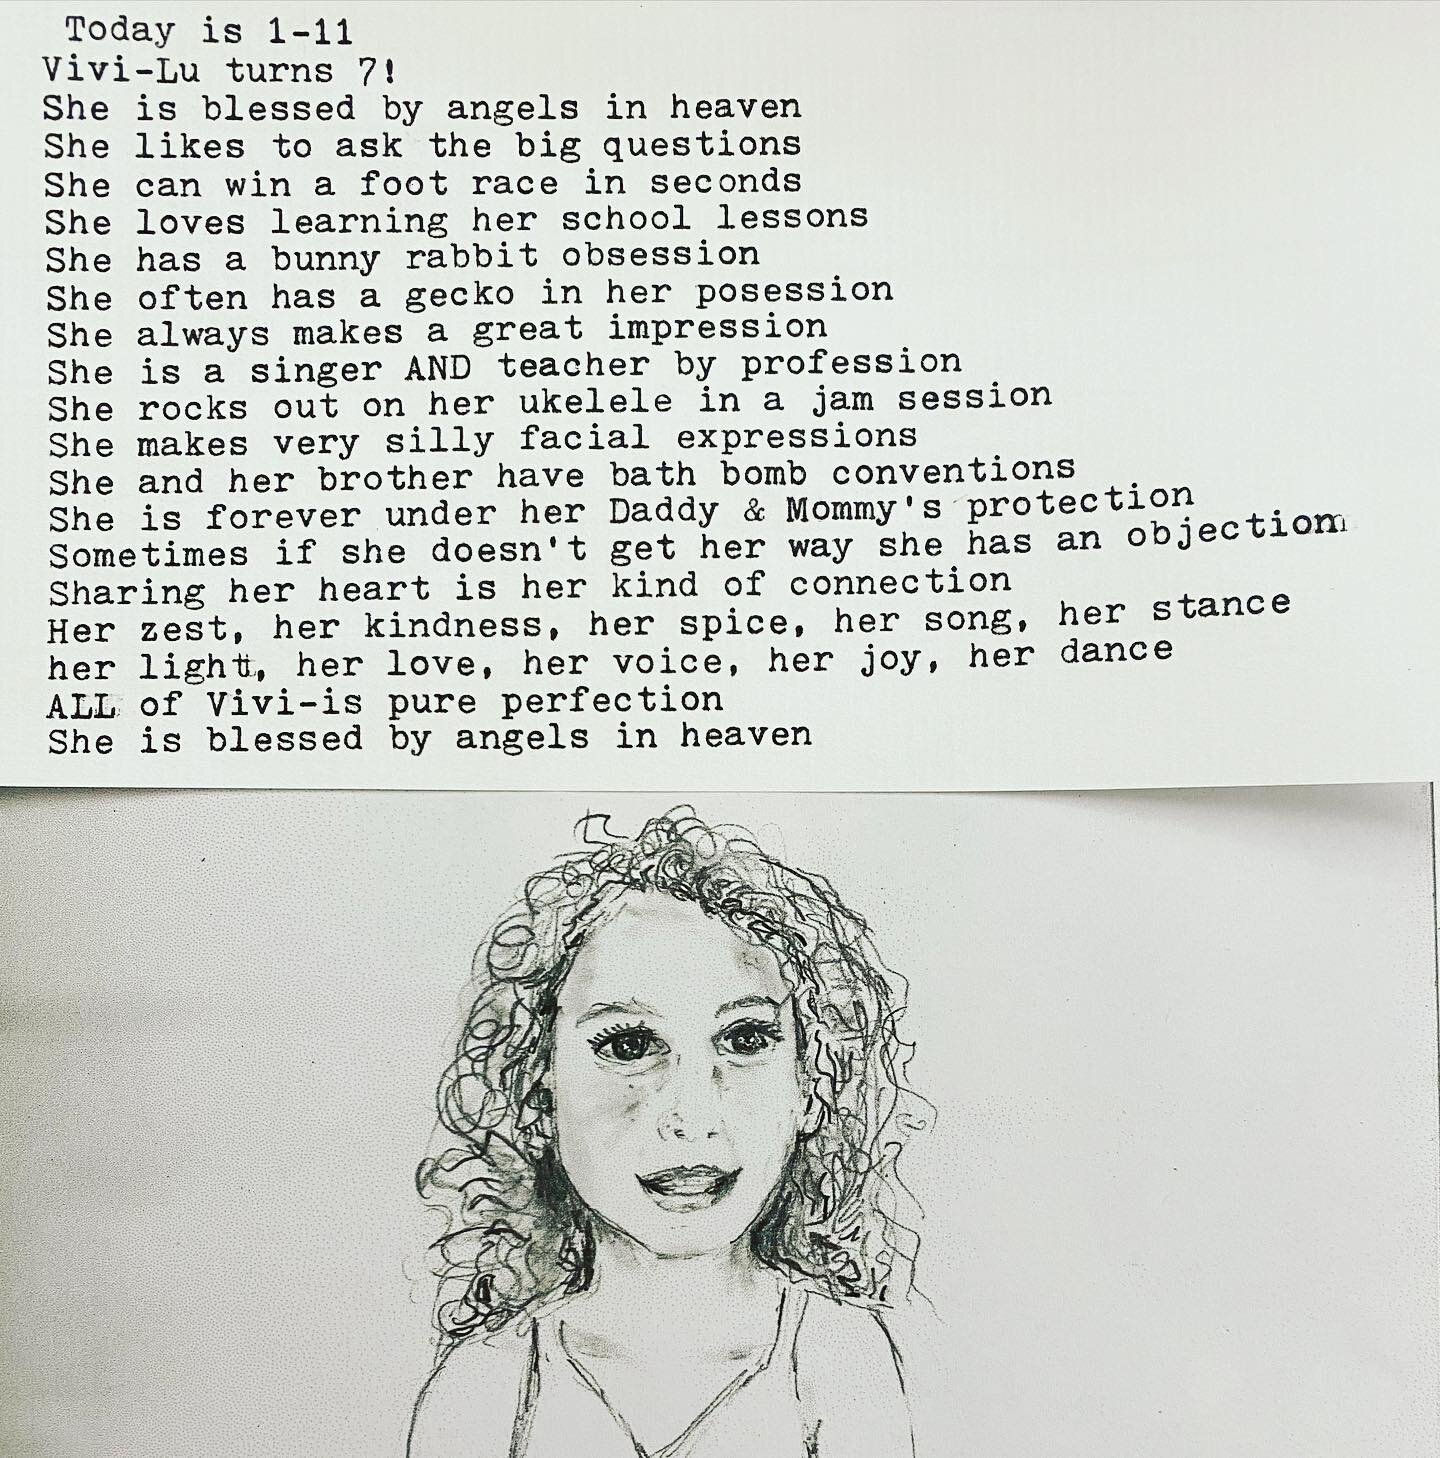 Today is 1-11
Vivi-Lu turns 7!
She is blessed by angels in heaven
She likes to ask the big questions
She can win a foot race in seconds
She loves learning her school lessons
She has a bunny rabbit obsession
She often has a gecko in her posession
She always makes a great impression
She is a singer AND teacher by profession
She rocks out on her ukelele in a jam session
She makes very silly facial expressions
She and her brother have bath bomb conventions
She is forever under her Daddy & Mommy's protection
Sometimes if she doesn't get her way she has an objection
Sharing her heart is her kind of connection
Her zest, her kindness, her spice, her song, her stance
her light, her love, her voice, her joy, her dance
ALL of Vivi-is pure perfection
She is blessed by angels in heaven